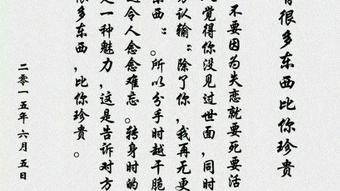 有很多东西比你珍贵
不要因为失恋就要死要活
觉得你没见过世面，同时
方认输“除了你，我再无更
东西”。所以分手时越干脆
令人念念难忘。转身时的
是一种魅力，这是告诉对方
很多东西，比你珍贵。
二零一五年六月五日